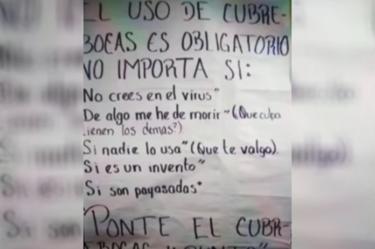 EL USO DE CUBRE-
BOCAS ES OBLIGATORIO
NO IMPORTA SI:
No crees en el virus"
De algo me he de morir"(Que culpa
tienen los demas?)
Si nadie lo usa"(Que te valga)
Si es un invento"
Si son payasadas"
"PONTE EL CUBRE-
BOCAS